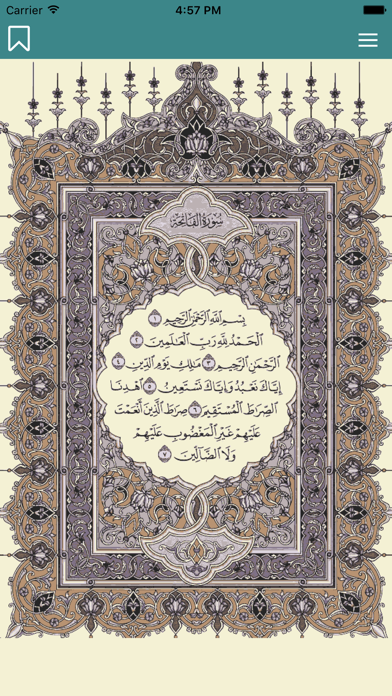 Carrier 4:57 PM
سُورَةُ الفَاتِحَةِ
بِسْمِ اللَّهِ الرَّحْمَٰنِ الرَّحِيمِ ١
الْحَمْدُ لِلَّهِ رَبِّ الْعَالَمِينَ ٢
الرَّحْمَٰنِ الرَّحِيمِ ٣ مَالِكِ يَوْمِ الدِّينِ ٤
إِيَّاكَ نَعْبُدُ وَإِيَّاكَ نَسْتَعِينُ ٥ اهْدِنَا
الصِّرَاطَ الْمُسْتَقِيمَ ٦ صِرَاطَ الَّذِينَ أَنْعَمْتَ
عَلَيْهِمْ غَيْرِ الْمَغْضُوبِ عَلَيْهِمْ
وَلَا الضَّالِّينَ ٧